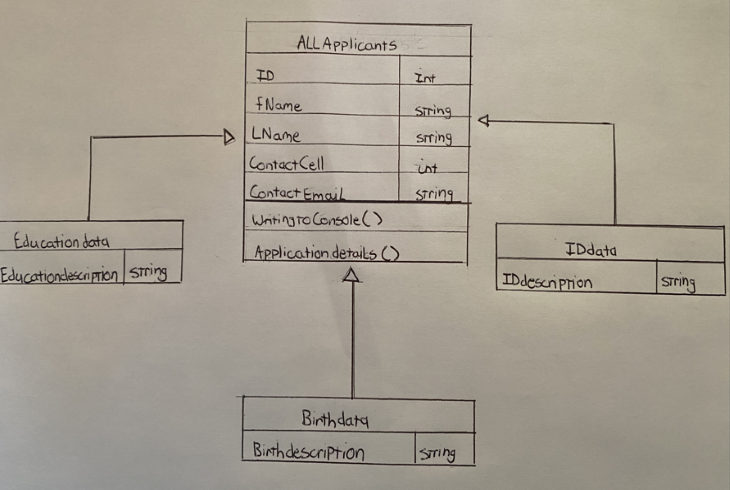 ALLApplicants
ID Int
fName string
LName string
ContactCell int
ContactEmail string
WritingToConsole()
Applicationdetails()
Educationdata
Educationdescription string
IDdata
IDdescription string
Birthdata
Birthdescription string